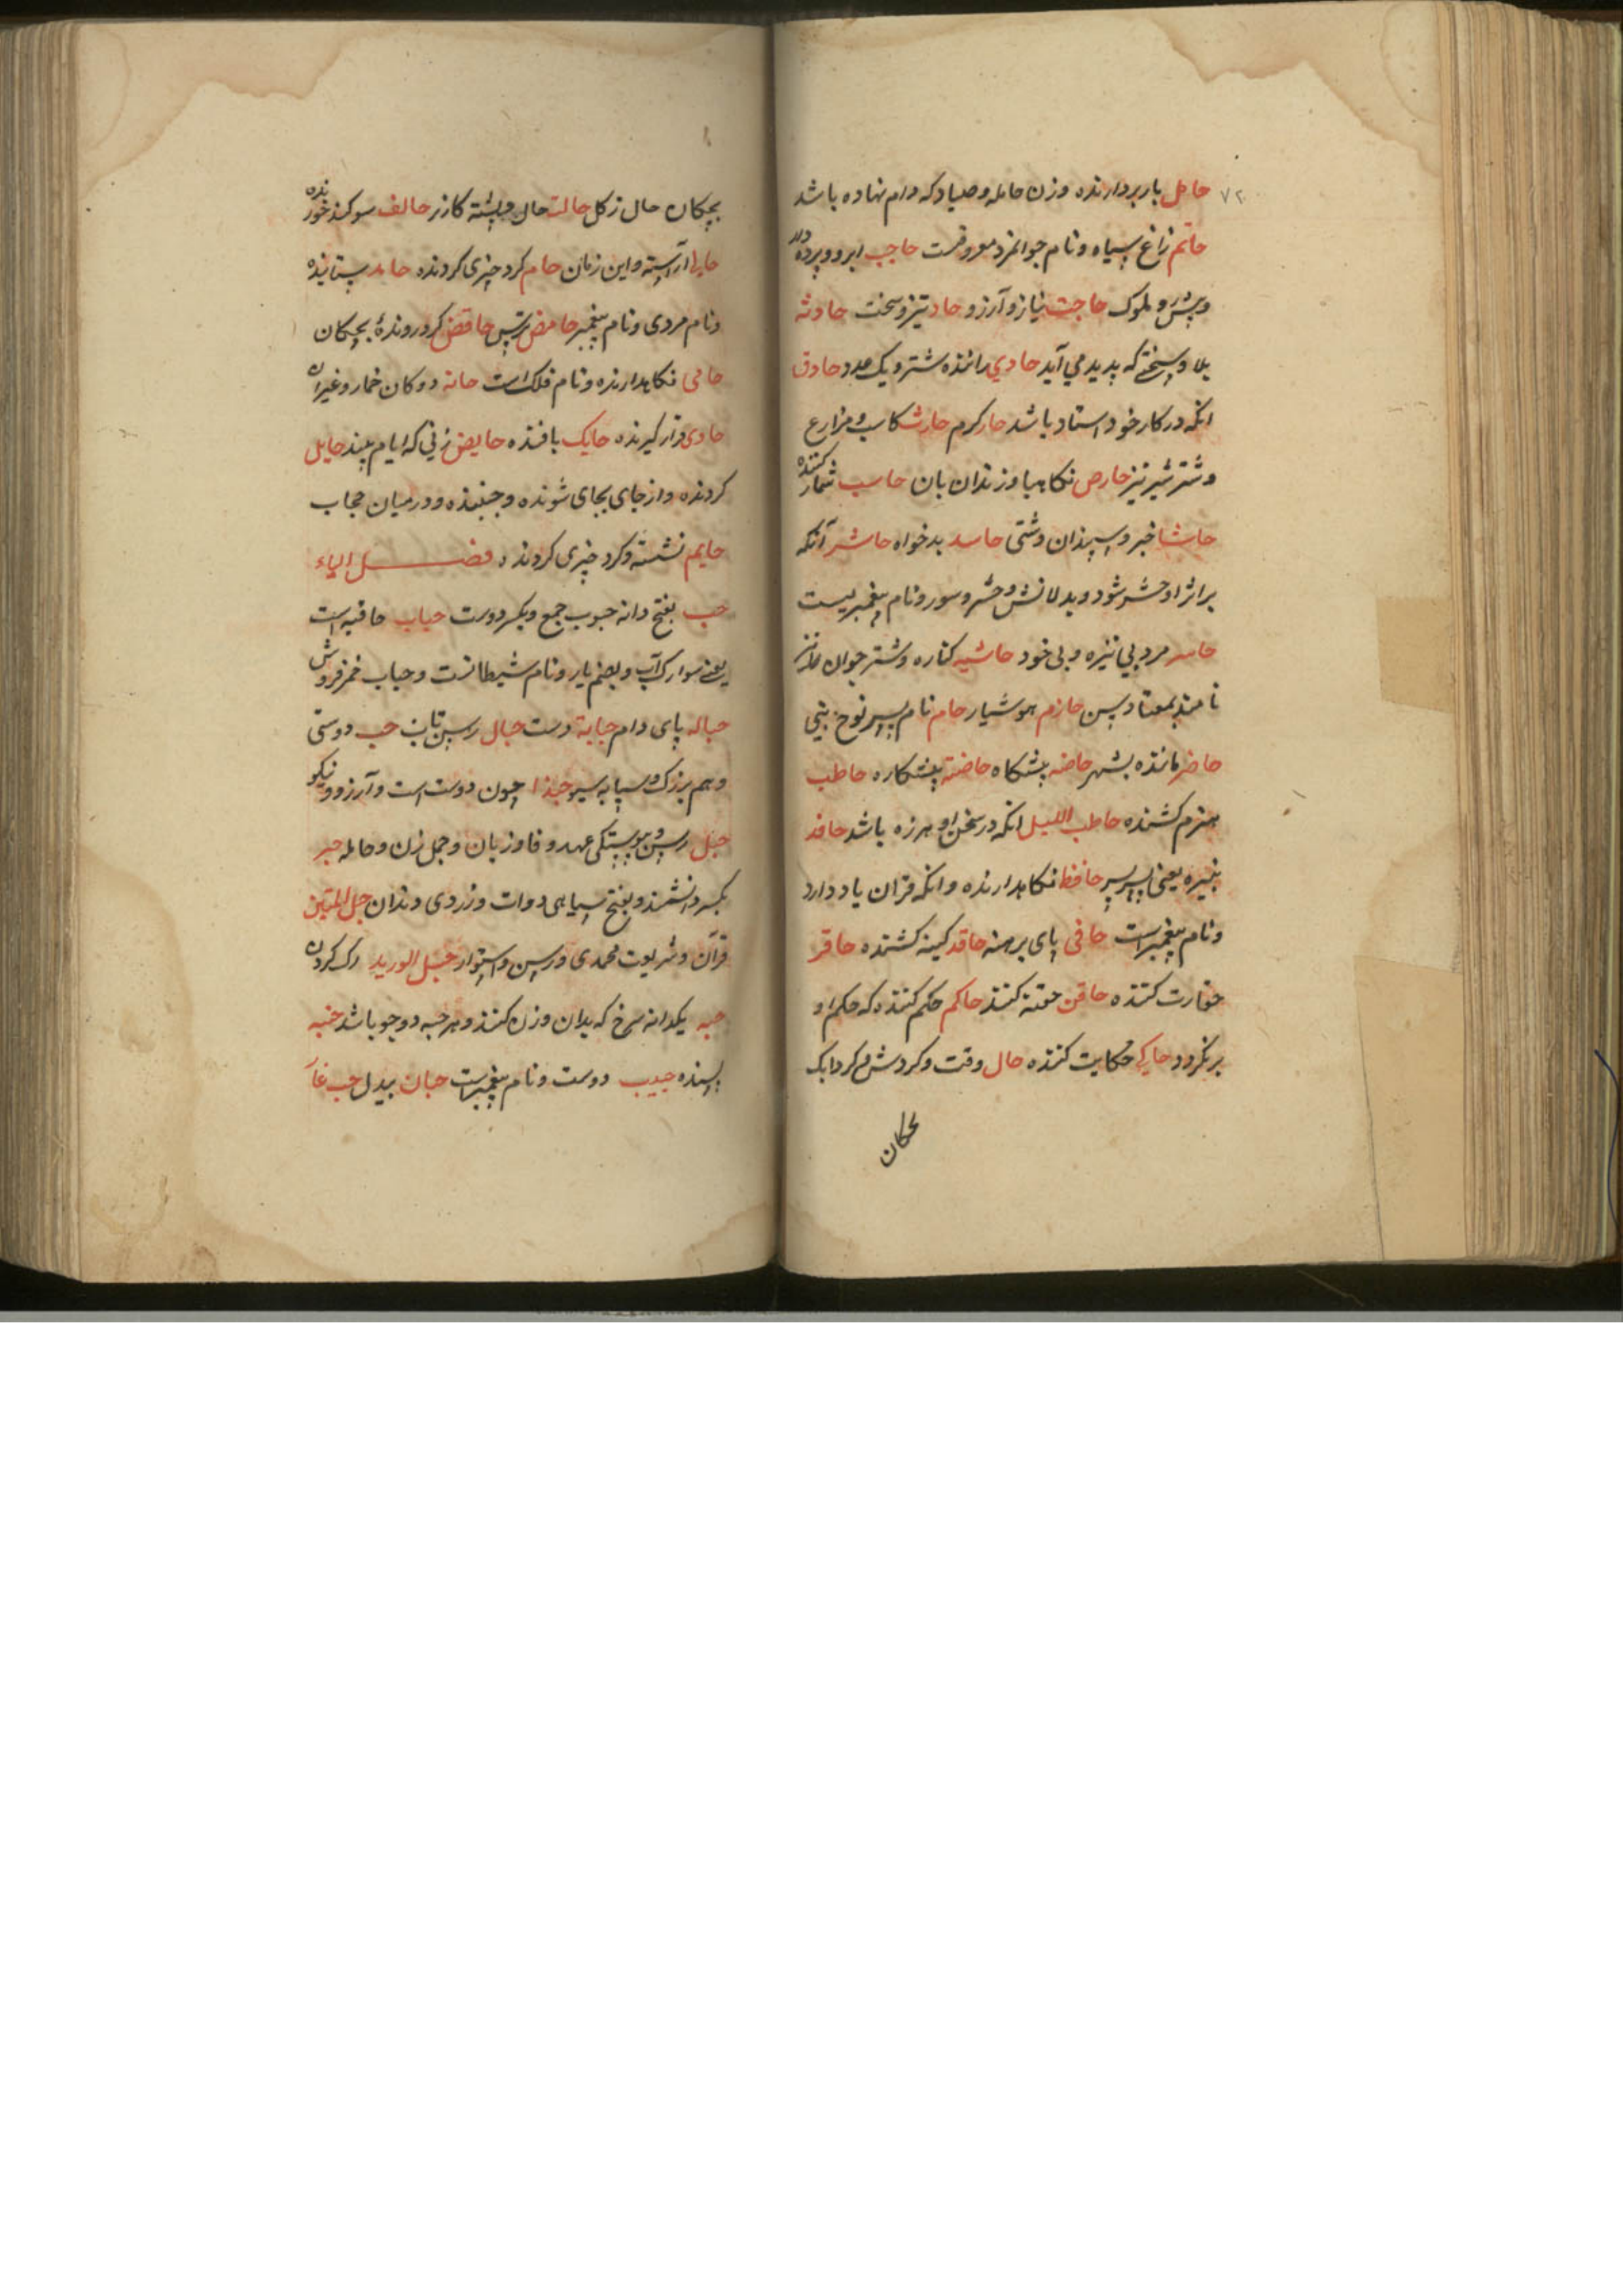 ۷۲
حامل بار بردارنده و زن حامله و صیاد که دام نهاده باشد
حاتم زاغ سیاه و نام جوانمرد معروفست حاجب ابرو و پرده دار
و پیش رو ملوک حاجت نیاز و آرزو حاد تیز و سخت حادثه
بلا و سختی که پدید می آید حادی راننده شتر و یک عدد حاذق
انکه در کار خود استاد باشد حار کرم حارث کاسب و مزارع
و شتر شیر تیز حارص نکاهبا و زندان بان حاسب شمار کننده
حاشا خبر و سپندان دشتی حاسد بدخواه حاشر آنکه
بر اثر او حشر شود و بدلانش و حشر و سور و نام پیغمبریست
حاسر مرد بی نیزه و بی خود حاشیه کناره و شتر جوان
حازم هوشیار حام نام پسر نوح نبی
حاضر مانده بشهر حاضه پیشکاه حاضنه پیشکاره حاطب
هیزم کشنده حاطب اللیل انکه در سخن او هرزه باشد حافد
نبیره یعنی پسر پسر حافظ نکاهدارنده و انکه قران یاد دارد
و نام پیغمبر است حافی پای برهنه حاقد کینه کشنده حاقر
حقارت کننده حاقن حقنه کنند حاکم حکم کننده که حکم او
بر نکردد حاکی حکایت کننده حال وقت و کردش و کردابک
بچکان
بچکان حال ز کل حالت حال و پشته کازر حالف سوکند خورنده
حالی آراسته و این زمان حام کرد چیزی کردنده حامد ستاینده
و نام مردی و نام پیغمبر حامض ترش حاقض کرد رونده بچکان
حامی نکاهدارنده و نام فلک است حانه دوکان خمار و غیر آن
حاوی قرار کیرنده حایک بافنده حایض زنی که ایام بیند حایل
کردنده و از جای بجای شونده و جنبنده و در میان حجاب
حایم نشسته و کرد چیزی کردنده فصل الباء
حب بفتح دانه حبوب جمع و بکسر دوست حباب
یعنی سوارک آب و بضم یار و نام شیطانست و حباب خمر فروش
حباله پای دام حبایة دست حبال رسن تاب حب دوستی
و هم بزرک و سپایه سبو حبذا چون دوست است و آرزو و نیکو
حبل رسن و پیوستکی عهد و فا و زبان و حمل زن و حامله حبر
بکسر دانشمند و بفتح سیاهی دوات و زردی دندان حبل المتین
قرآن و شریعت محمدی و رسن و استوار حبل الورید رک کردن
حبه یکدانه سرخ که بدان وزن کنند و هر حبه دو جو باشد حبه
پسنده حبیب دوست و نام پیغمبر است حبان بیدل حب